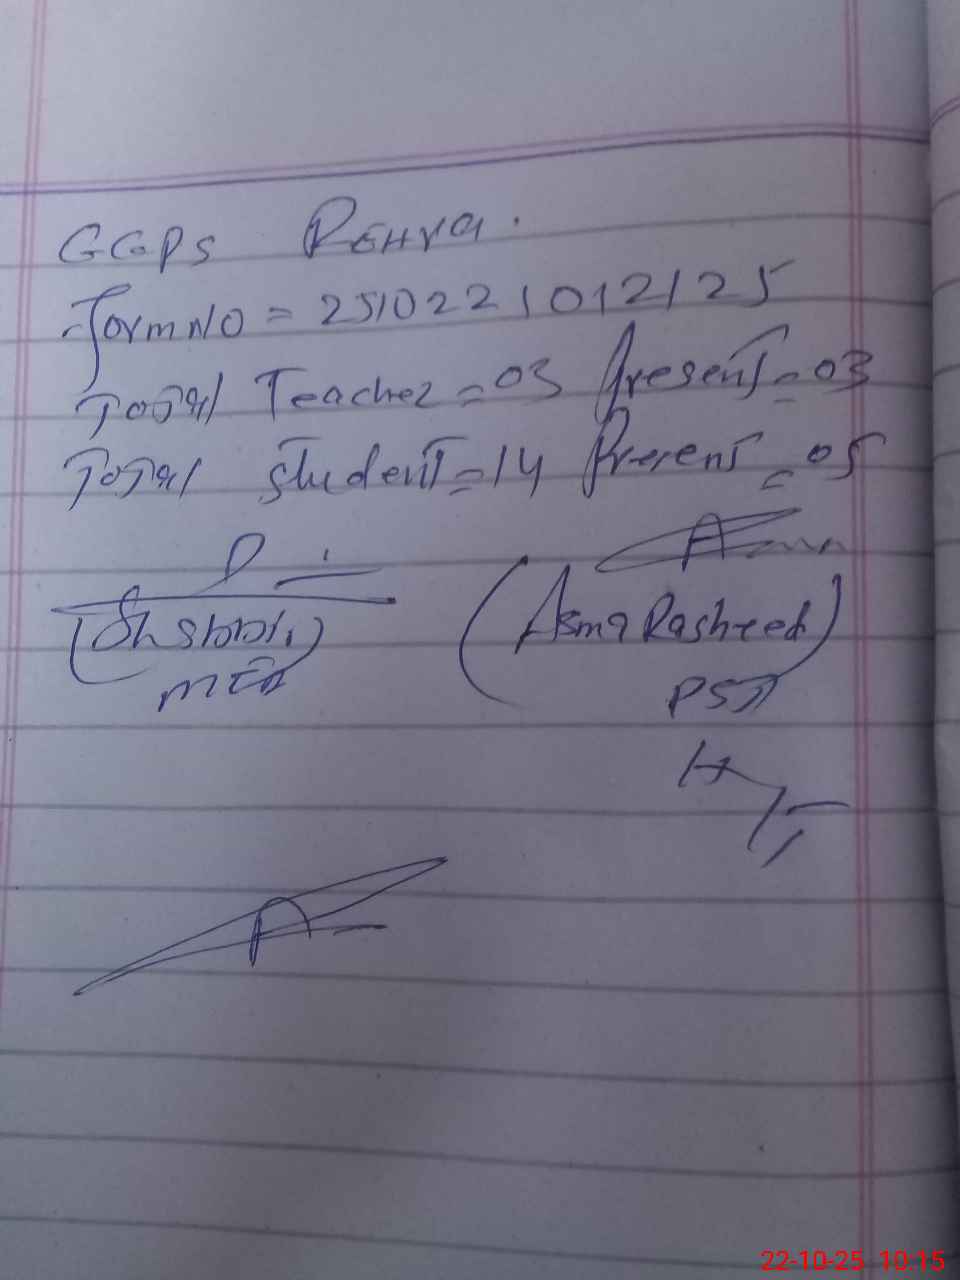 GGPS Rehra.
Form NO = 2510221012125
Total Teacher = 03 Present = 03
Total Student = 14 Present = 05
(Asma Rasheed)
MEA PST
22-10-25 10:15